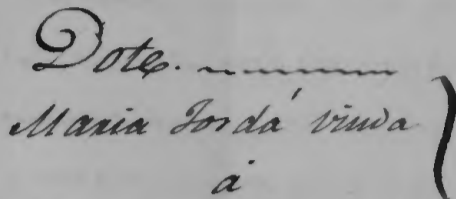 Dote.
Maria Jordá viuda
á